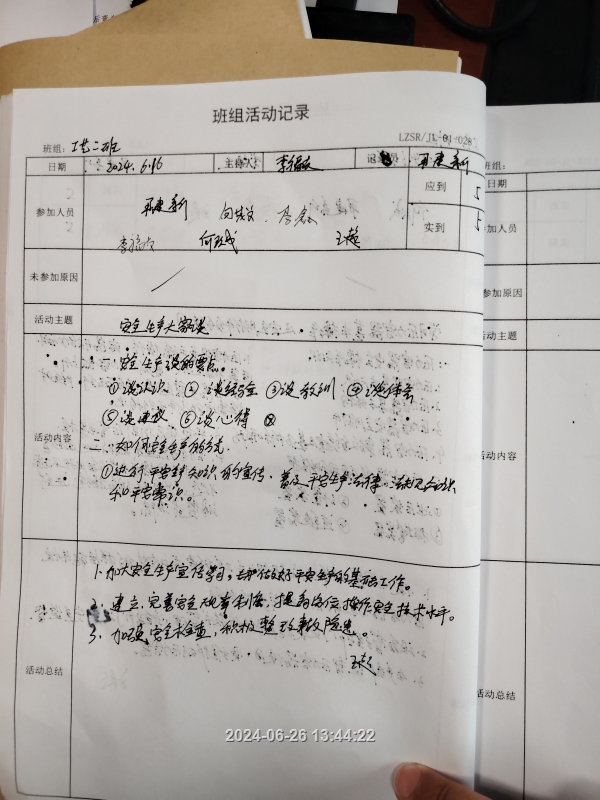 班组活动记录
LZSR/JL-01-028
班组: 工艺二班
班组:
日期 2024.6.16 主持人 李 记 员 王建新
日期
参加人员 王建新 应到 5
何 王超 实到 5
参加人员
未参加原因
参加原因
活动主题 安全生产大家谈
活动主题
活动内容 一.安全生产谈的要点。
①谈认识 ②谈经验 ③谈教训 ④谈体会
⑤谈建议 ⑥谈心得
二.如何安全生产的方式.
①进行平安生产知识的宣传、普及平安生产法律、法规知识
和平安常识。
活动内容
活动总结 1.加大安全生产宣传学习,去做好平安生产的基础工作。
2.建立、完善安全规章制度,提高岗位操作安全技术水平。
3.加强安全检查,积极整改事故隐患。
王超
活动总结
2024-06-26 13:44:22